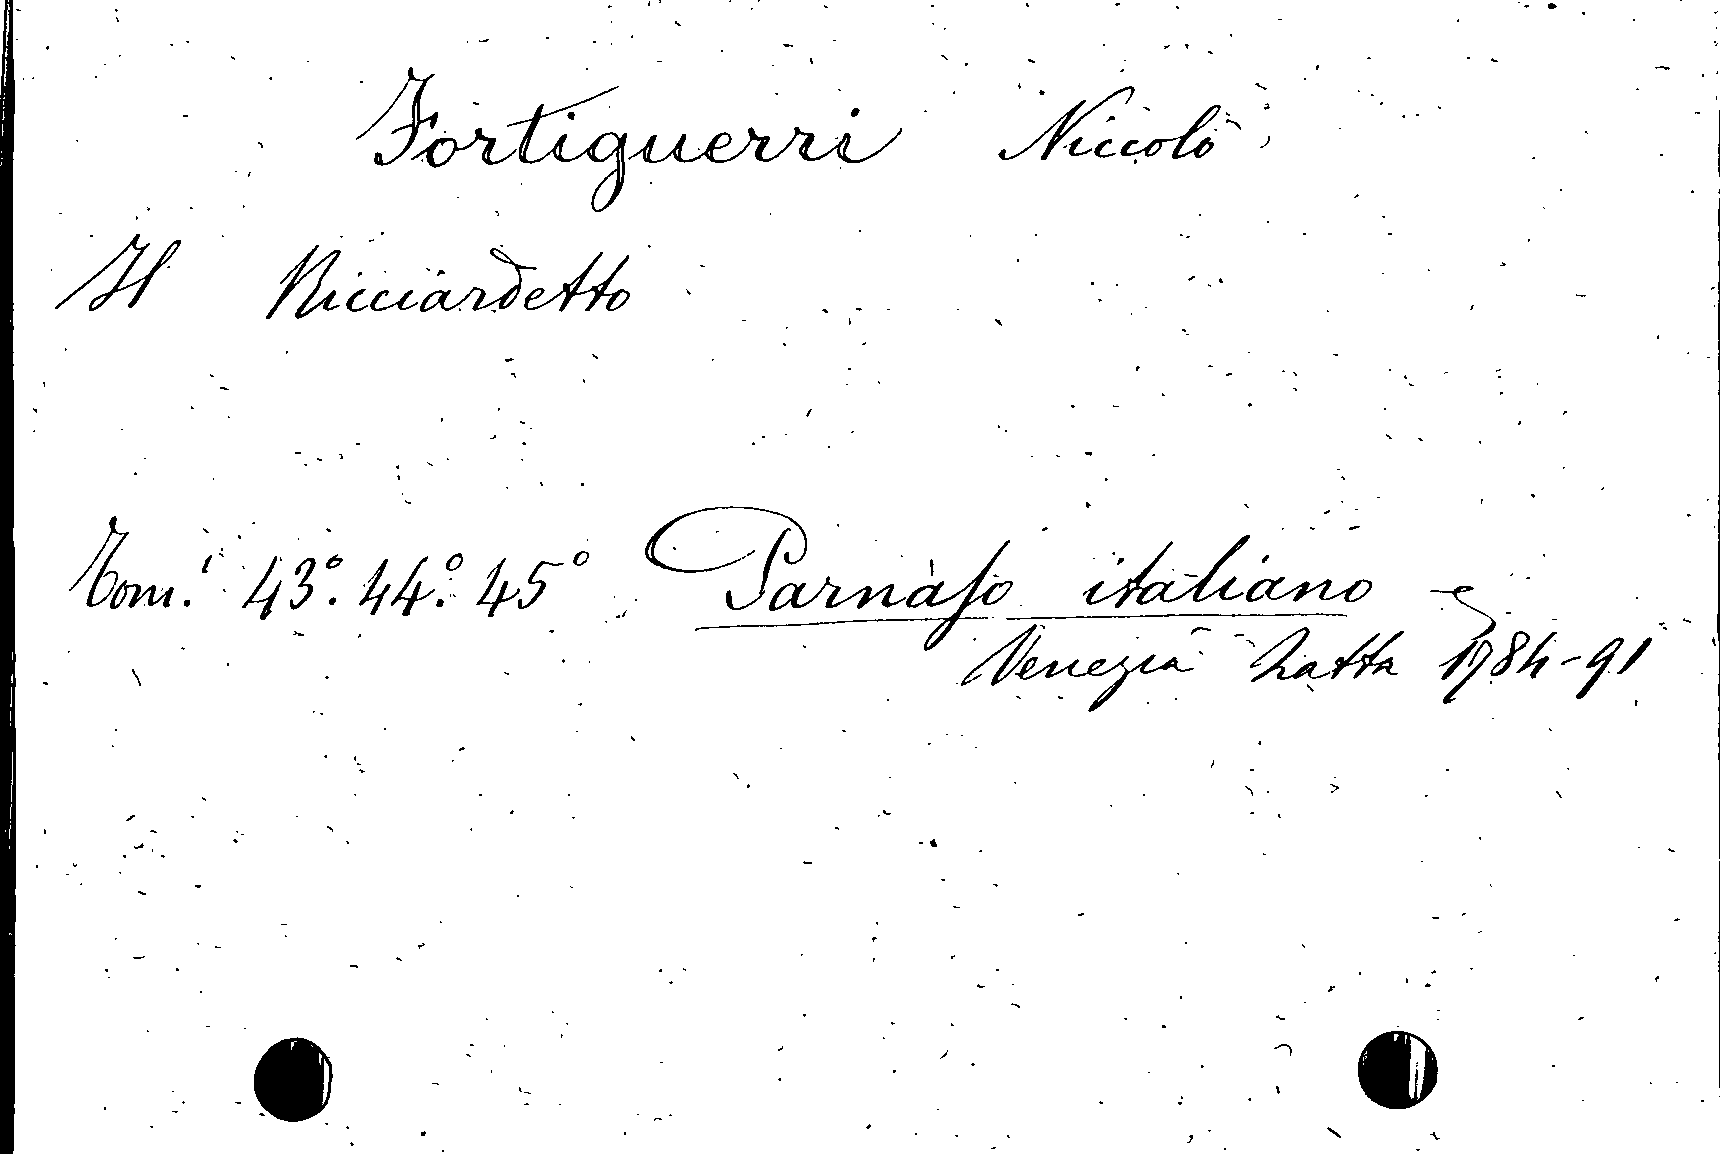 Fortiguerri Niccolò
Il Ricciardetto
Tom.i 43.º 44.º 45º Parnaſo italiano
Venezia Zatta 1784-91